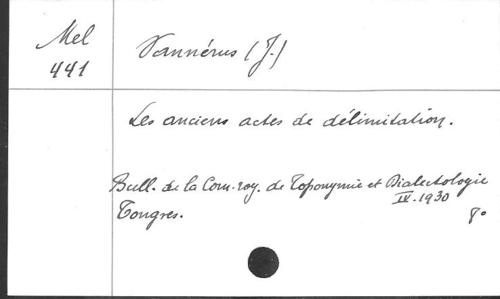 Mel
441
Vannérus (J.)
Les anciens actes de délimitation.
Bull. de la Com. roy. de Toponymie et Dialectologie
IV. 1930
Tongres.
8°